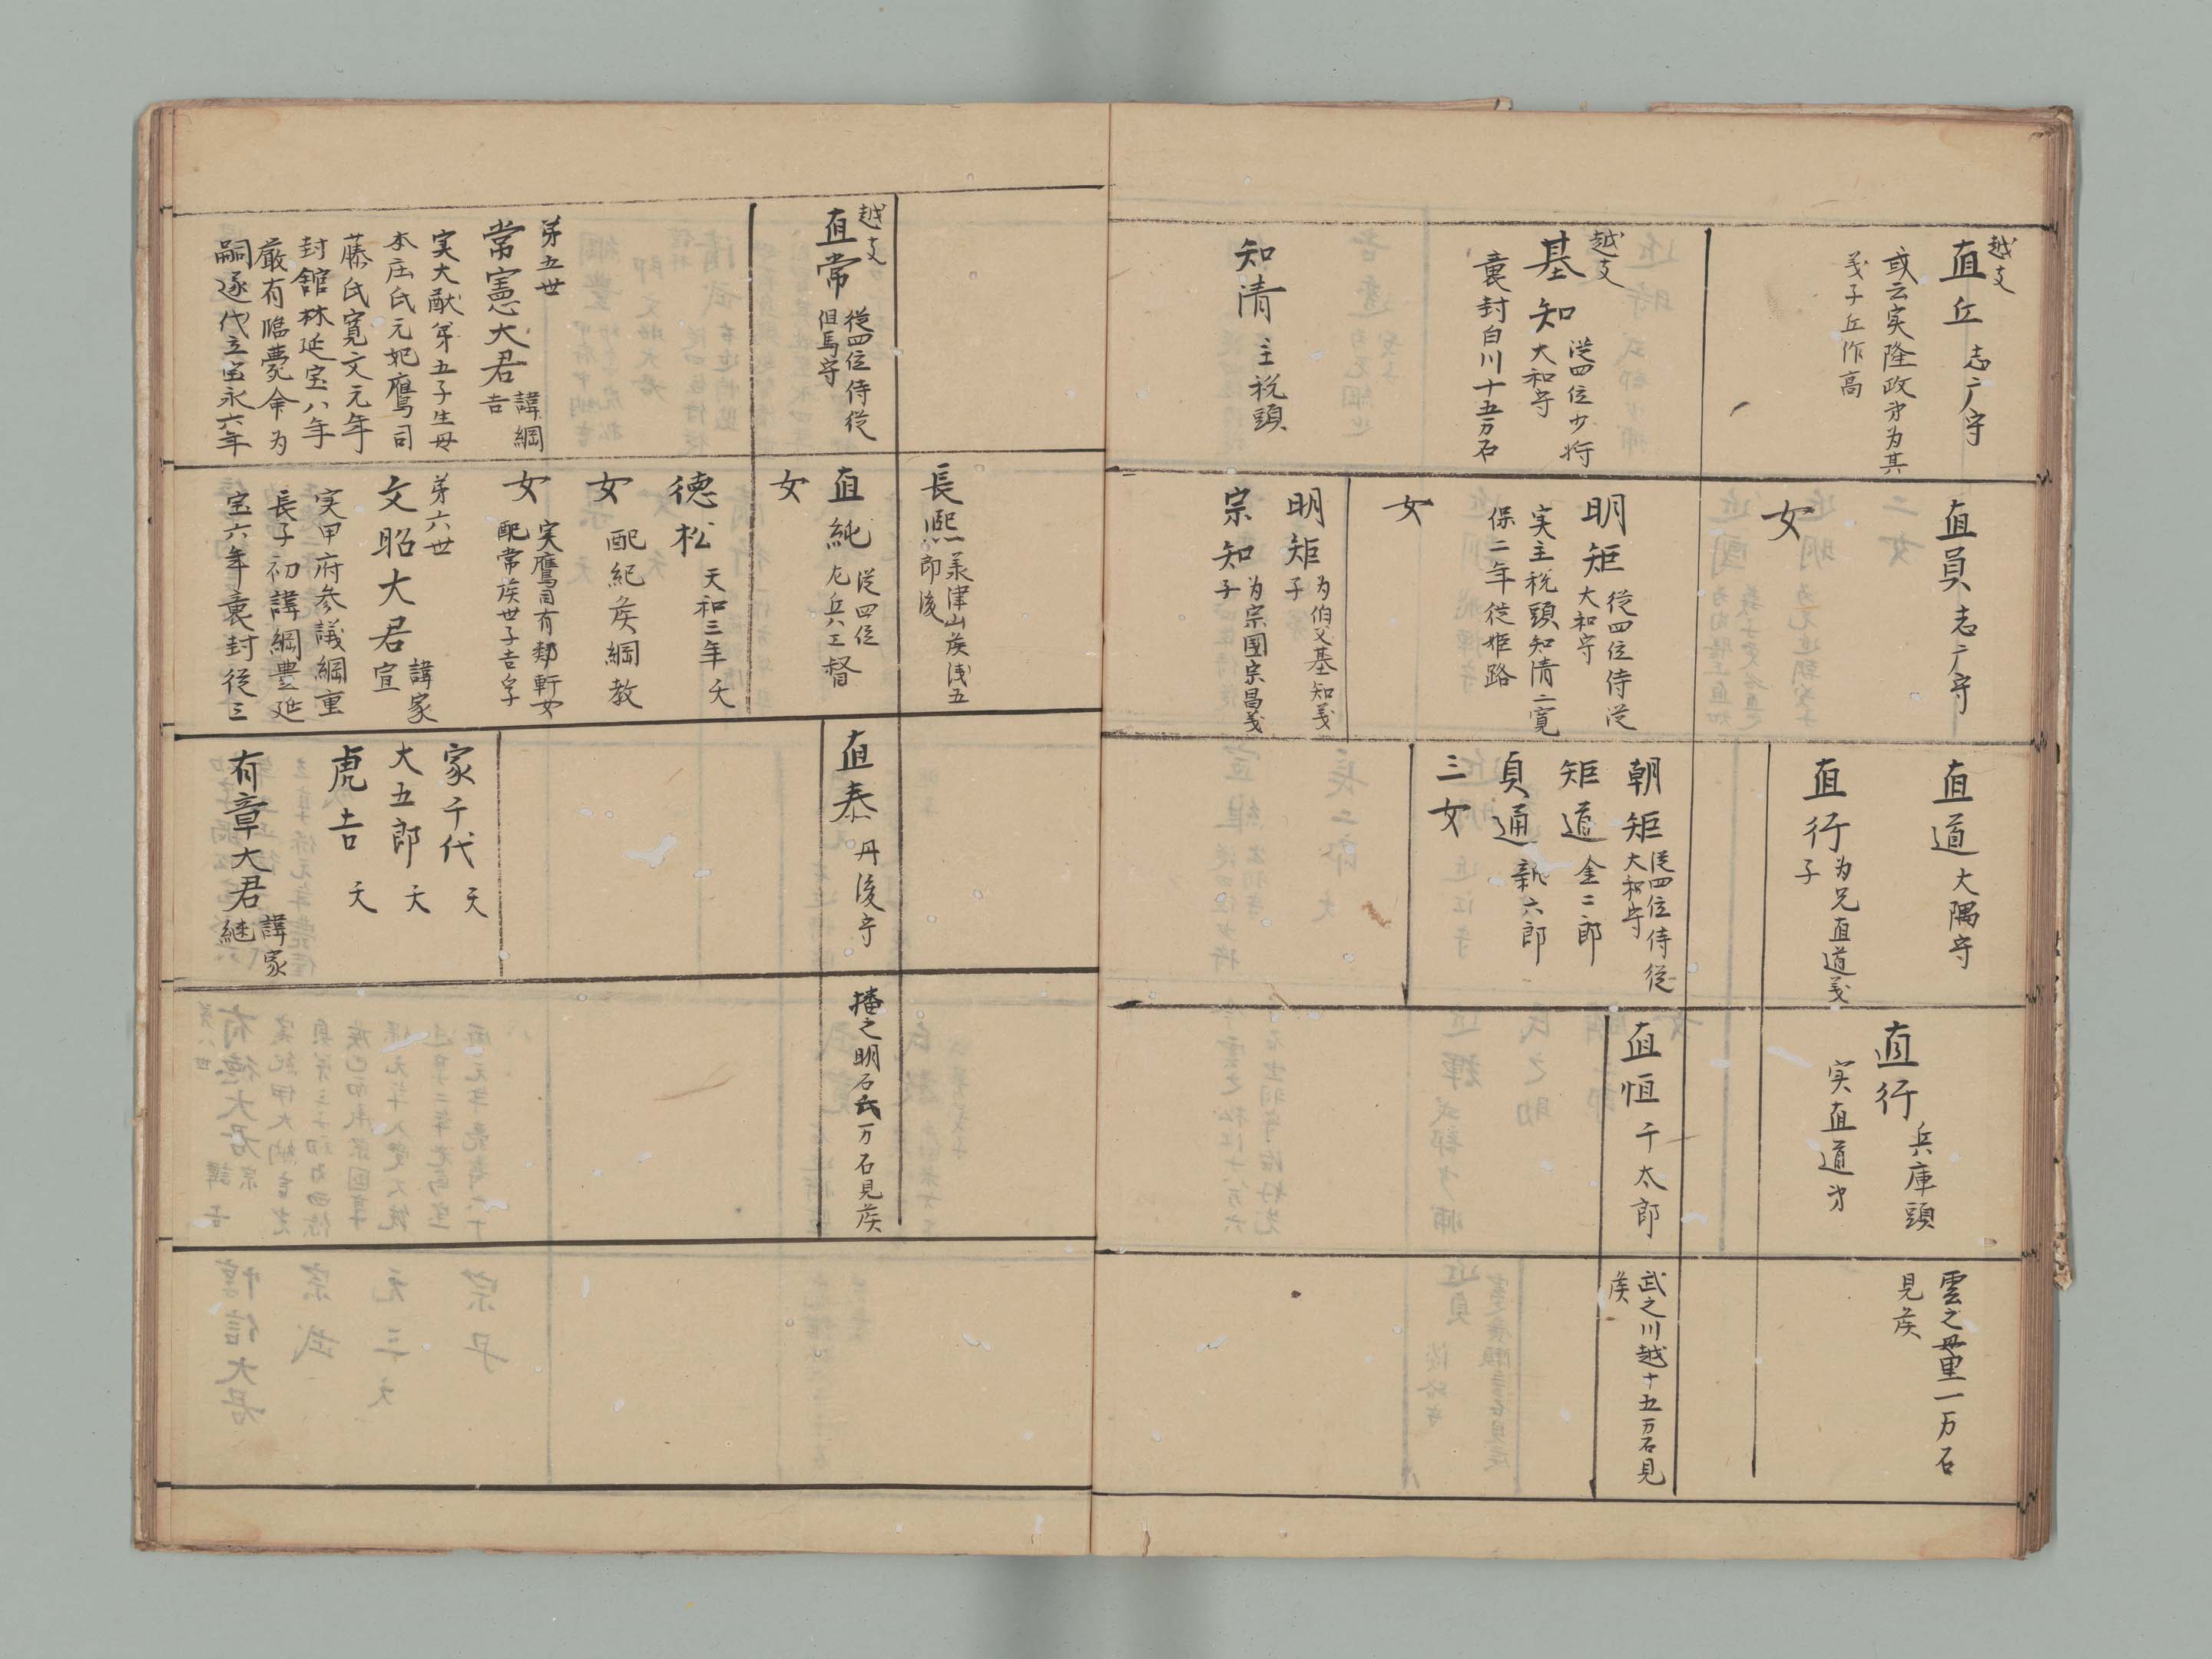 越支
直丘 志广守
或云実隆政弟为其
義子丘作高
越支
基知 従四位少将
大和守
襲封白川十五万石
知清 主税頭
直員 志广守
女
明矩 従四位侍従
大和守
実主税頭知清二寛
保二年従姫路
女
明矩 为伯父基知義
子
宗知 为宗国宗昌義
子
直道 大隅守
直行 为兄直道義
子
朝矩 従四位侍従
大和守
矩道 金二郎
貞通 新六郎
三女
直行 兵庫頭
実直道弟
直恒 千太郎
雲之母里一万石
見矦
武之川越十五万石見
矦
越支
直常 従四位侍従
但馬守
第五世
常憲大君 諱綱
吉
実大猷第五子生母
本庄氏元妃鷹司
藤氏寛文元年
封舘林延宝八年
厳有臨薨命为
嗣逐代立宝永六年
長熈 美津山矦浅五
郎後
直純 従四位
左兵工督
女
徳松 天和三年夭
女 配紀矦綱教
女 実鷹司有鄰軒女
配常矦世子吉孚
第六世
文昭大君 諱家
宣
実甲府参議綱重
長子初諱綱豊延
宝六年襲封従三
直泰 丹後守
家千代 夭
大五郎 夭
虎吉 夭
有章大君 諱家
継
播之明石氏万石見矦